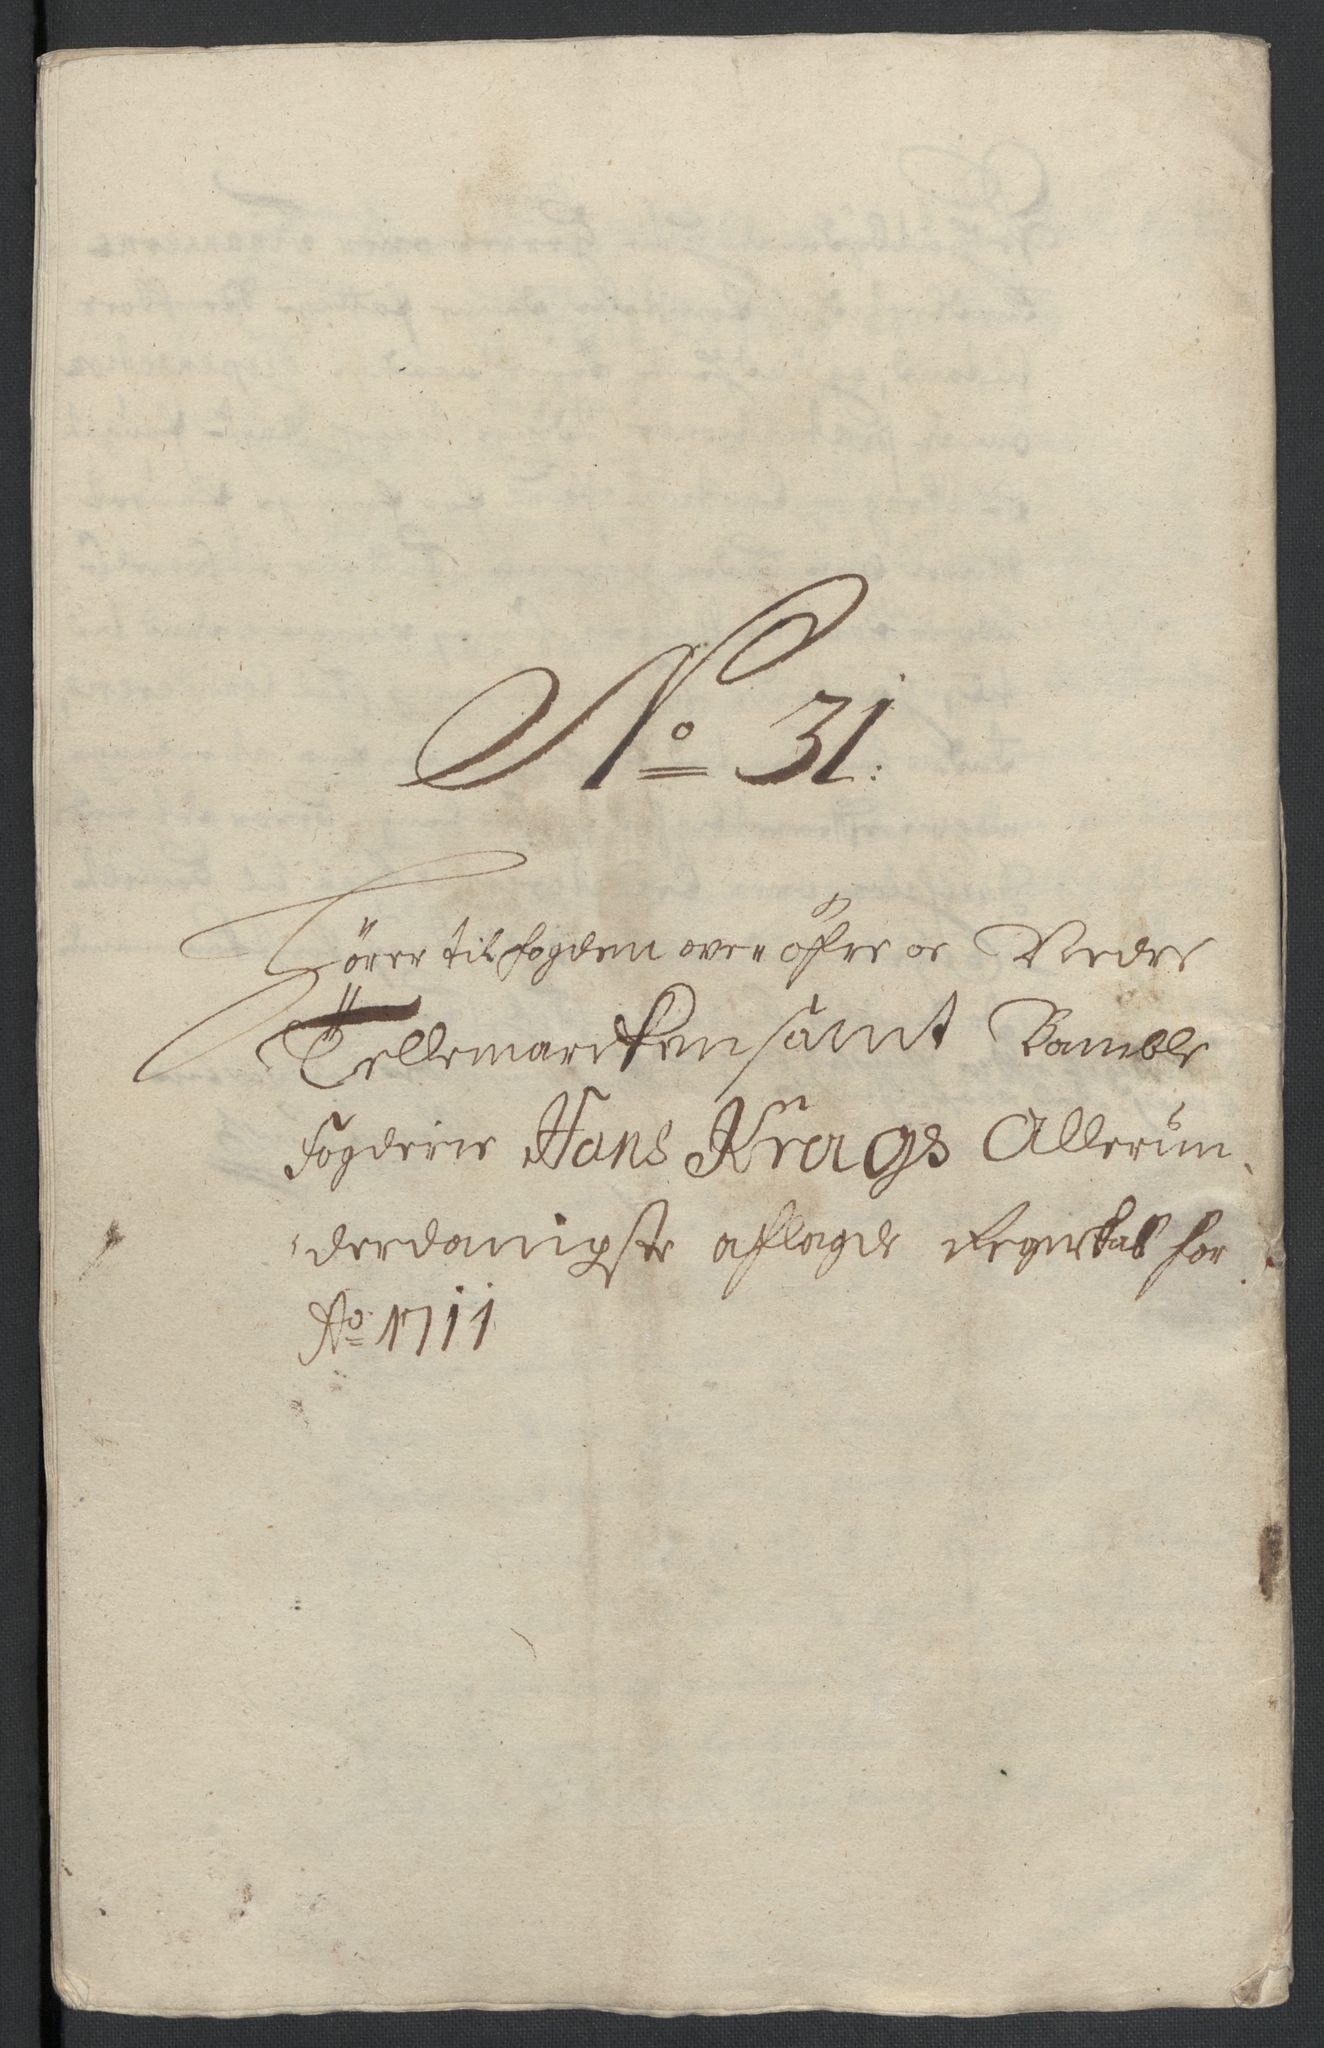 No 31:
Hörer til fogden over öfre oc Nedre
Tellemarcken samt Bamble
fogderie Hans Krags Allerun
derdanigste aflagde Regnskab for
Ao 1711